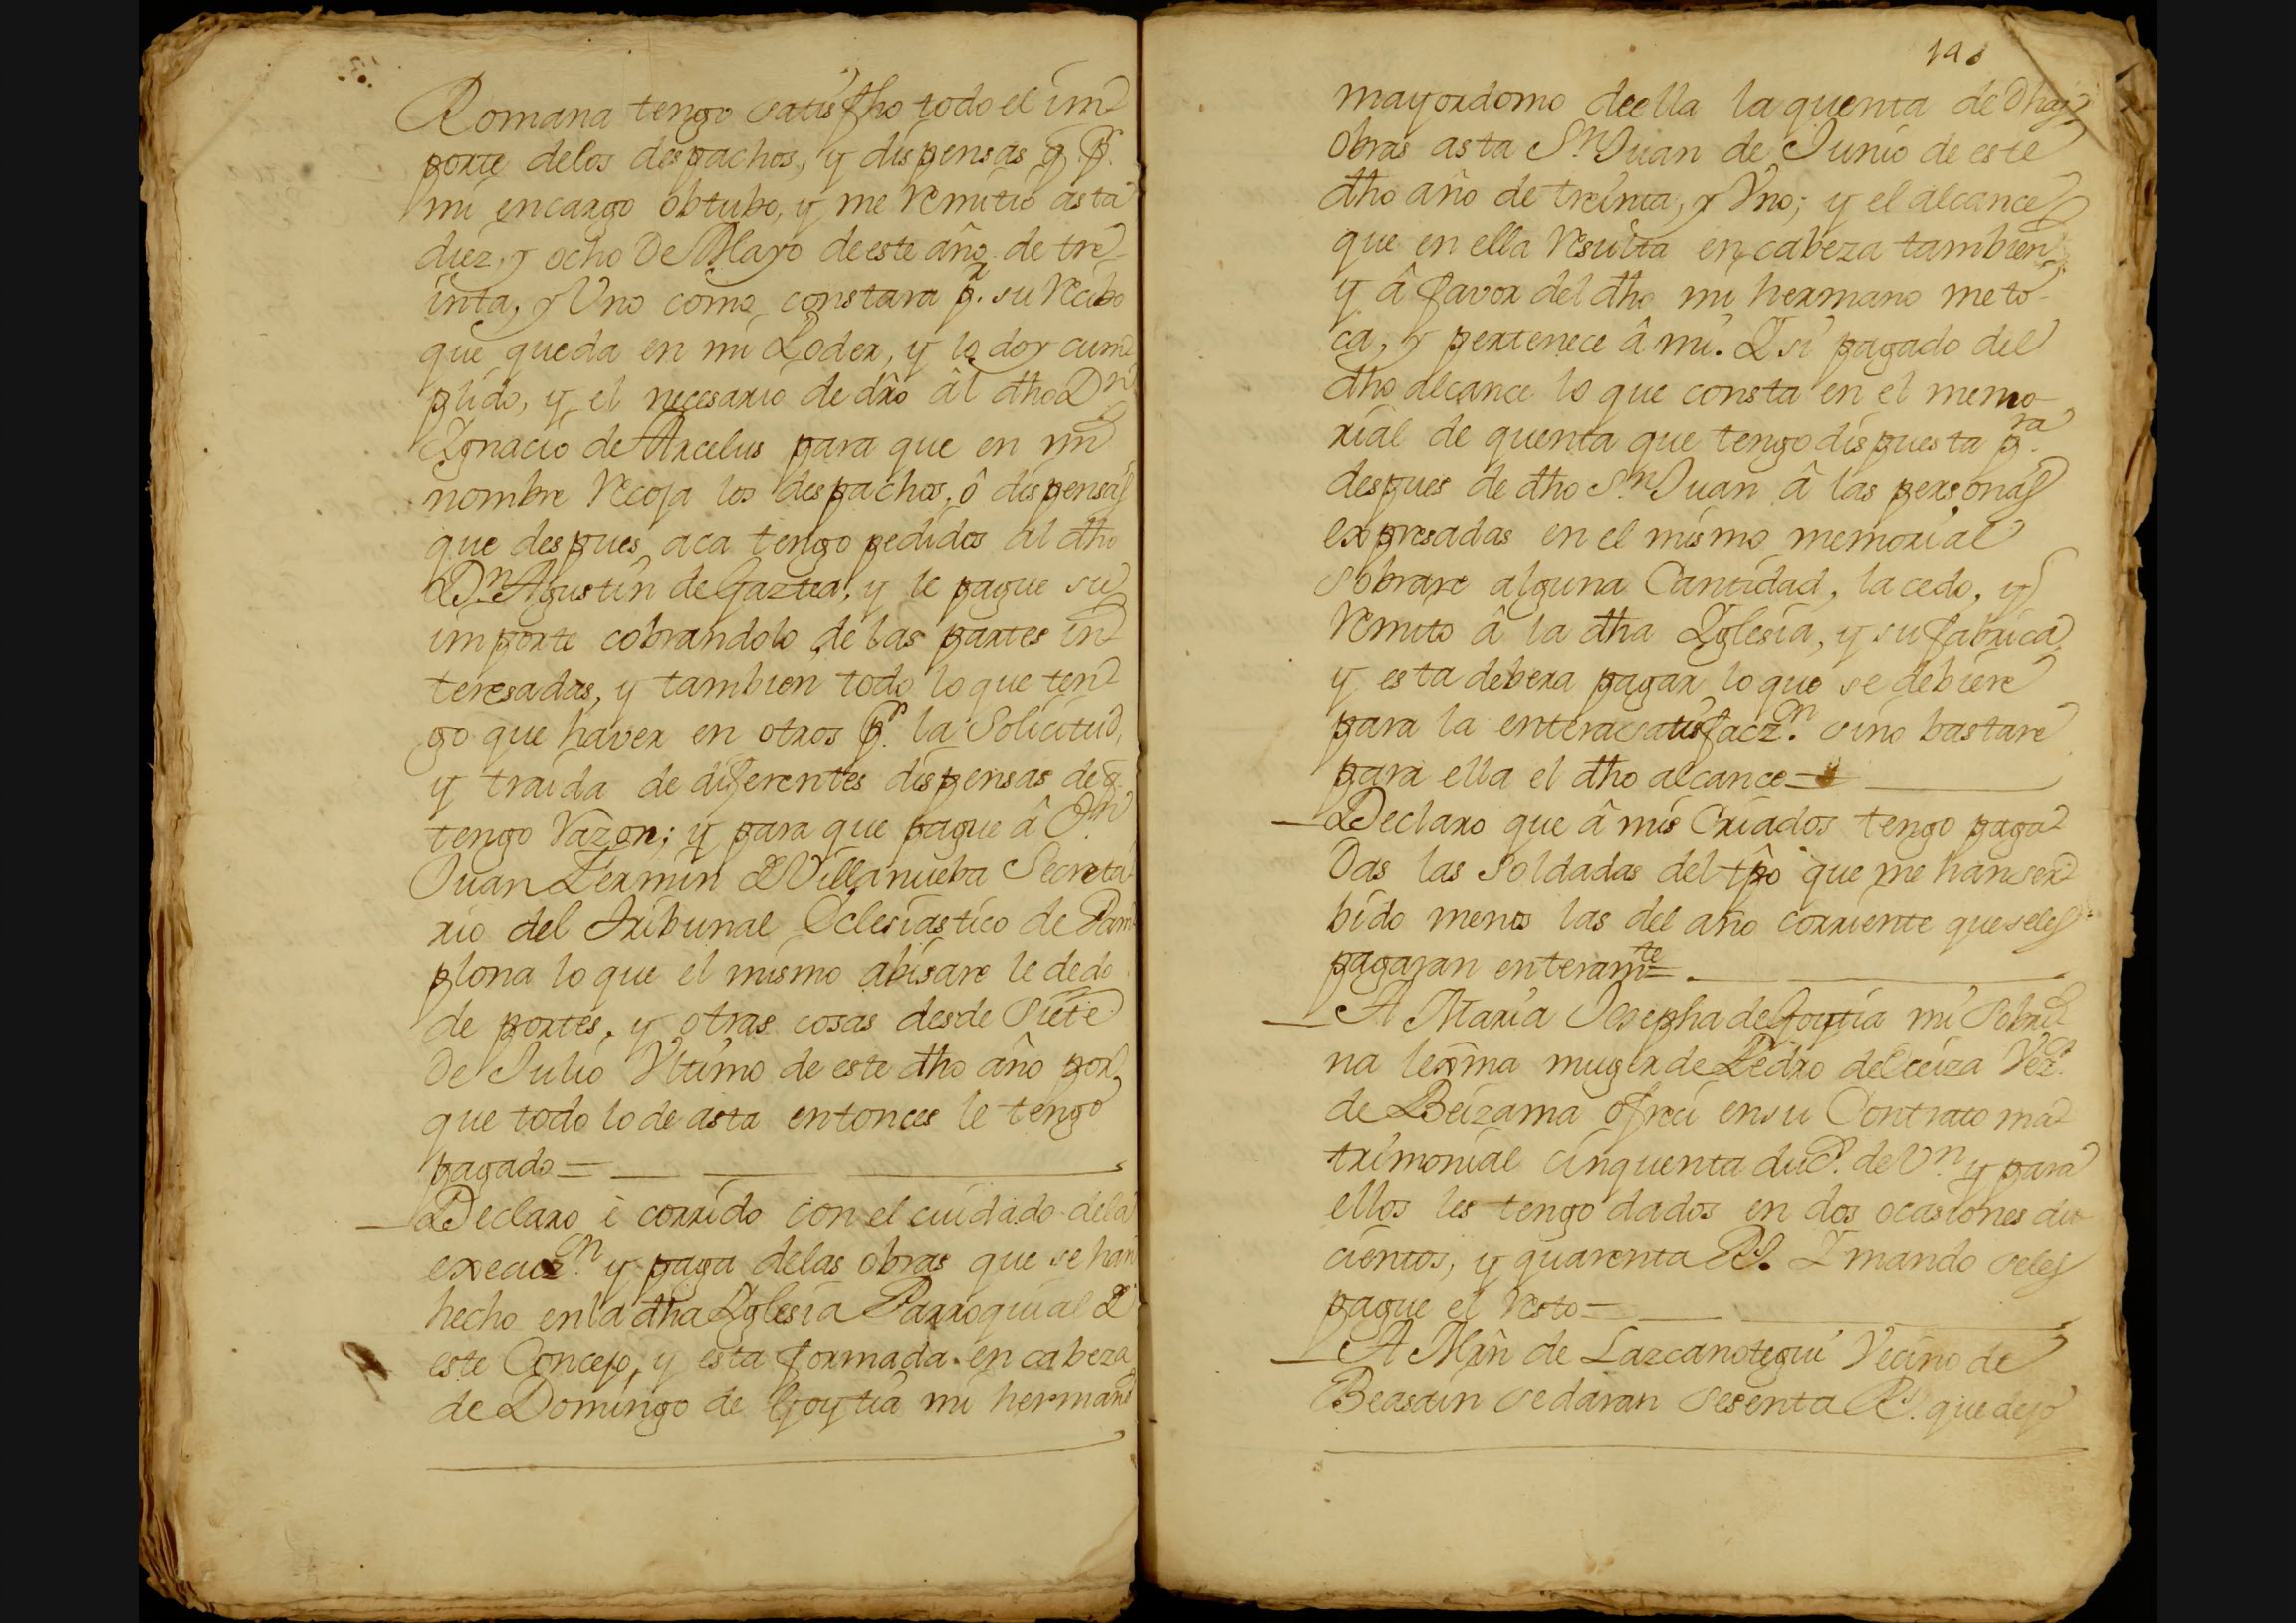 Romana tengo satisfho todo el im-
porte delos despachos, y dispensas q. Pr.
mi encargo obtubo, y me remitio asta
diez, y ocho De Mayo de este año de tre-
inta, y Vno como constara pr. su recibo
que queda en mi Poder, y lo doy cum-
plido, y el necesario de dro âl dho Dn
Ygnacio de Arcelus para que en mi
nombre recoja los despachos, ô dispensas
que despues aca tengo pedidos al dho
Dn. Agustin de Gaztea, y le pague su
importe cobrandolo de las partes in-
teresadas, y tambien todo lo que ten-
go que haver en otros pr. la Solicitud,
y traida de diferentes dispensas de q.
tengo razon; y para que pague â Dn
Juan Fermin de Villanueba Secreta-
rio del Tribunal Eclesiastico de Pam-
plona lo que el mismo abisare le dedo
de portes, y otras cosas desde Siete
De Julio Vltimo de este dho año por
que todo lo de asta entonces le tengo
pagado =
Declaro è corrido con el cuidado dela
execuzn. y paga delas obras que se han
hecho enla dha Yglesia Parroquial de
este Concejo, y esta formada en cabeza
de Domingo de Goytia mi hermano
198
mayordomo de ella la quenta de Dhas
obras asta Sn. Juan de Junio de este
dho año de treinta, y Vno; y el alcance
que en ella resulta en cabeza tambien,
y â favor del dho mi hermano me to-
ca, y pertenece â mi. Y si pagado del
dho alcance lo que consta en el memo-
rial de quenta que tengo dispuesta pra.
despues de dho Sn. Juan â las personas
expresadas en el mismo memorial
sobrare alguna Cantidad, la cedo, y
remito â la dha Yglesia, y su fabrica
y esta debera pagar lo que se debiere
para la entera satisfaczn. sino bastare
para ella el dho alcance =
Declaro que â mis Criados tengo paga-
Das las Soldadas del tpo que me han ser-
bido menos las del año corriente que seles
pagaran enteramte =
A Maria Josepha de Goytia mi Sobri-
na lexma muger de Pedro de Leiza Vez.
de Beizama ofreci ensu Contrato ma-
trimonial cinquenta dus. de Vn. y para
ellos les tengo dados en dos ocasiones du-
cientos, y quarenta Rs. Y mando seles
pague el resto =
A Mrn de Lazcanotegui Vecino de
Beasain se daran sesenta Rs. que dejo